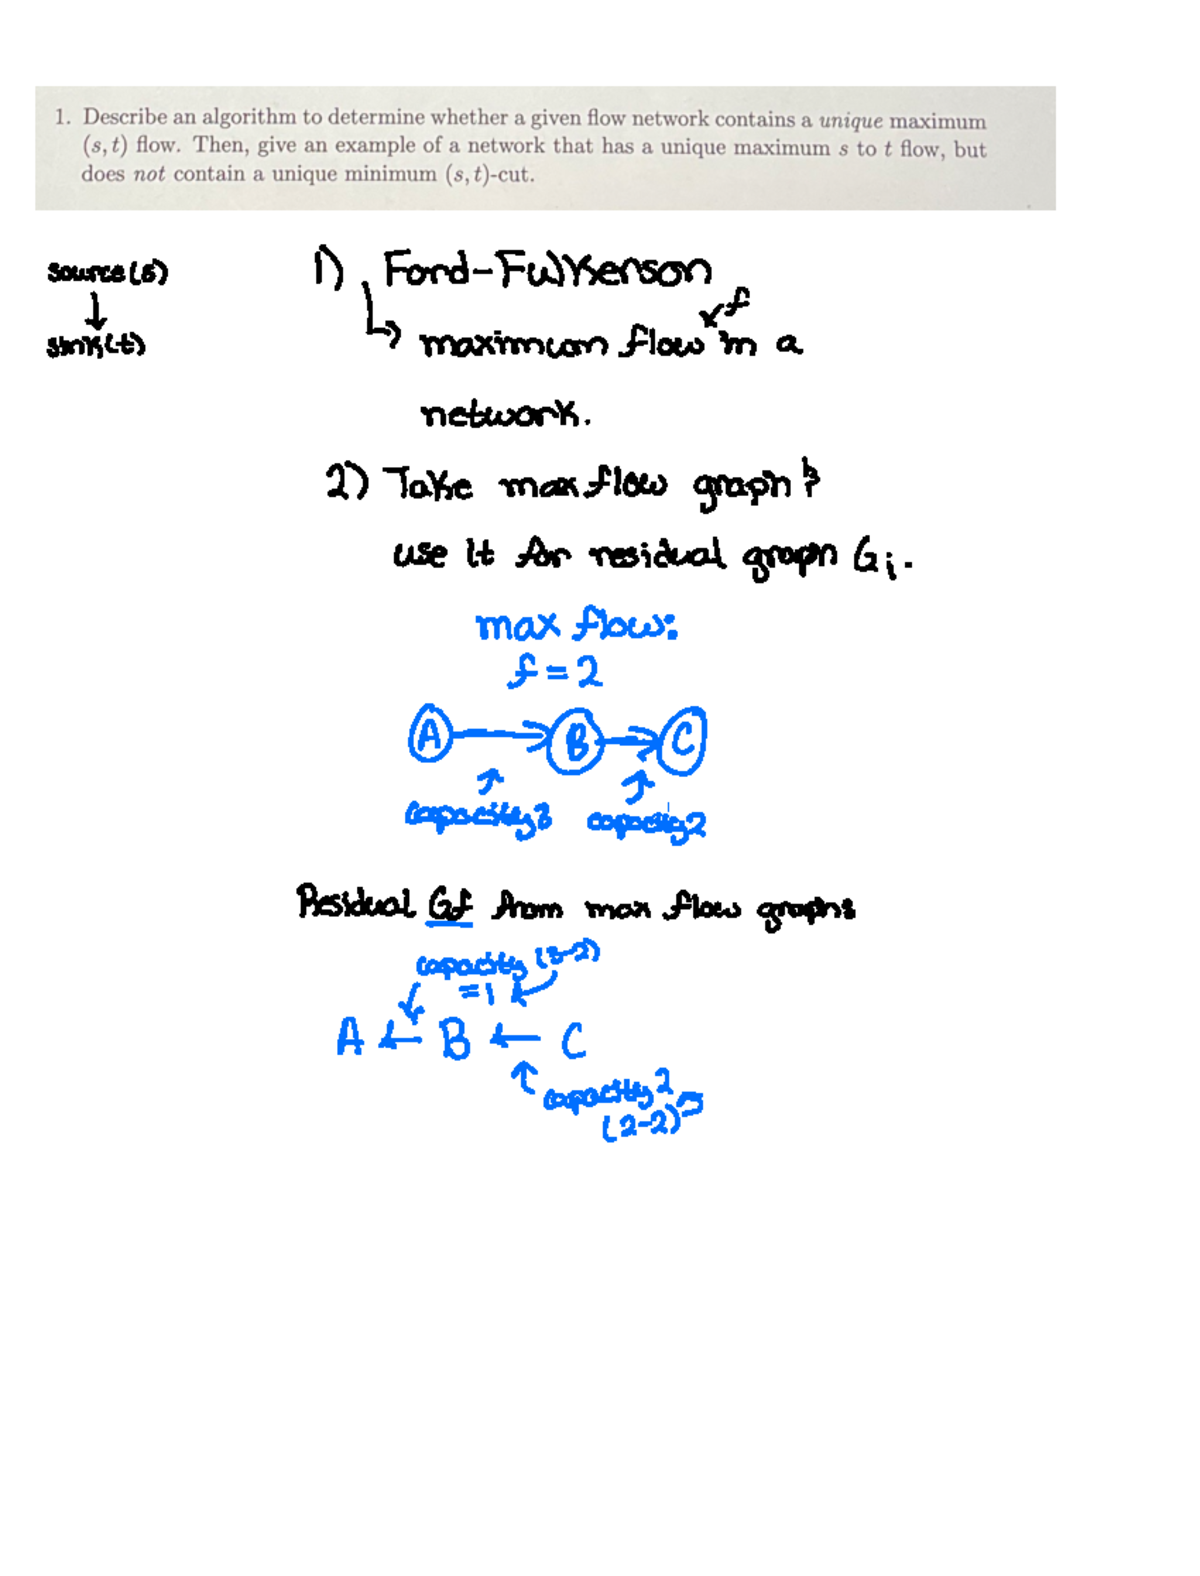 1. Describe an algorithm to determine whether a given flow network contains a unique maximum
(s, t) flow. Then, give an example of a network that has a unique maximum s to t flow, but
does not contain a unique minimum (s, t)-cut.
source (s)
↓
sink (t)
1) Ford-Fulkerson
↳ maximum flow in a
f
network.
2) Take max flow graph &
use it for residual graph Gi.
max flow:
f = 2
A → B → C
capacity 3 capacity 2
Residual Gf from max flow graph:
capacity (3-2)
=1
A ← B ← C
capacity 2
(2-2)